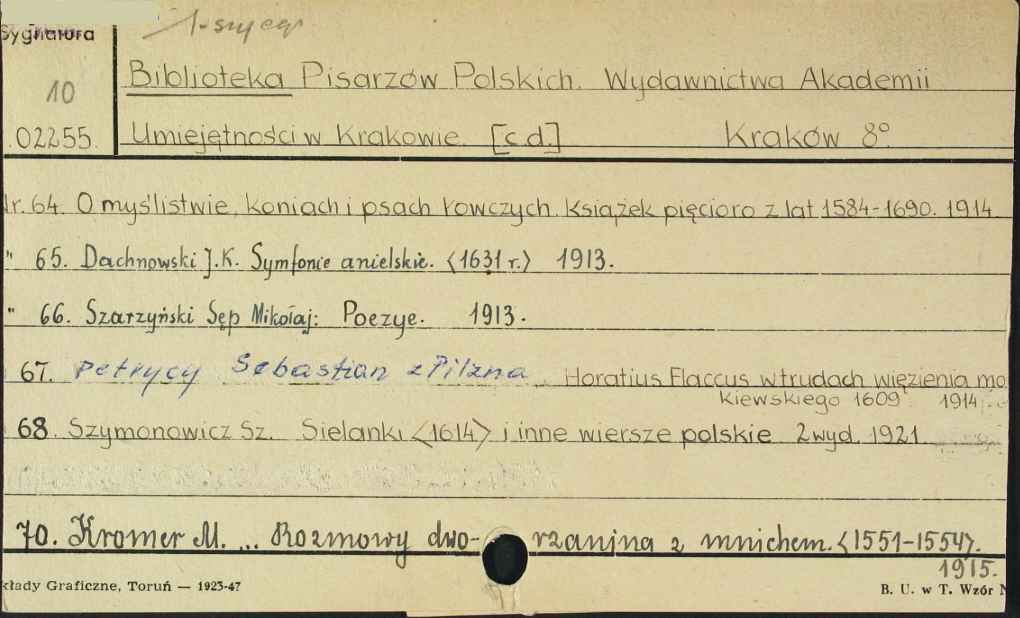 Sygnatura
10
02255.
Biblioteka Pisarzów Polskich. Wydawnictwa Akademii
Umiejętności w Krakowie. [c.d.] Kraków 8°.
Nr. 64. O myślistwie, koniach i psach łowczych. książek pięcioro z lat 1584-1690. 1914
" 65. Dachnowski J.K. Symfonie anielskie. <1631 r.> 1913.
" 66. Szarzyński Sęp Mikołaj: Poezye. 1913.
67. Petrycy Sebastian z Pilzna. Horatius Flaccus w trudach więzienia mo
kiewskiego 1609 1914
68. Szymonowicz Sz. Sielanki <1614> i inne wiersze polskie 2 wyd. 1921
70. Kromer M. ... Rozmowy dwo- rzanina z mnichem. <1551-1554>.
1915.
kłady Graficzne, Toruń — 1923-47
B. U. w T. Wzór N